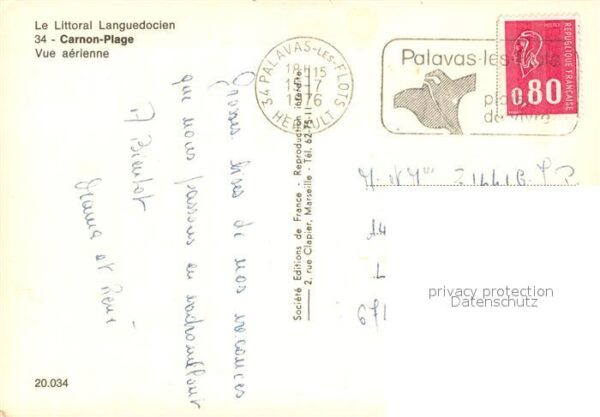 Le Littoral Languedocien
34 - Carnon-Plage
Vue aérienne
34 PALAVAS-LES-FLOTS
18H15
1976
HERAULT
Palavas-les-Flots
de vivre
REPUBLIQUE FRANÇAISE
0,80
Grosses bises de nos vacances
que nous passons en
A Bientôt
et René
Société Editions de France - Reproduction interdite
2, rue Clapier, Marseille - Tél. 62-75-11
M. et Mme
privacy protection
Datenschutz
20.034